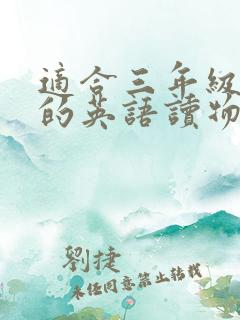 適合三年級
的英語讀物
劉捷
未經同意禁止轉載